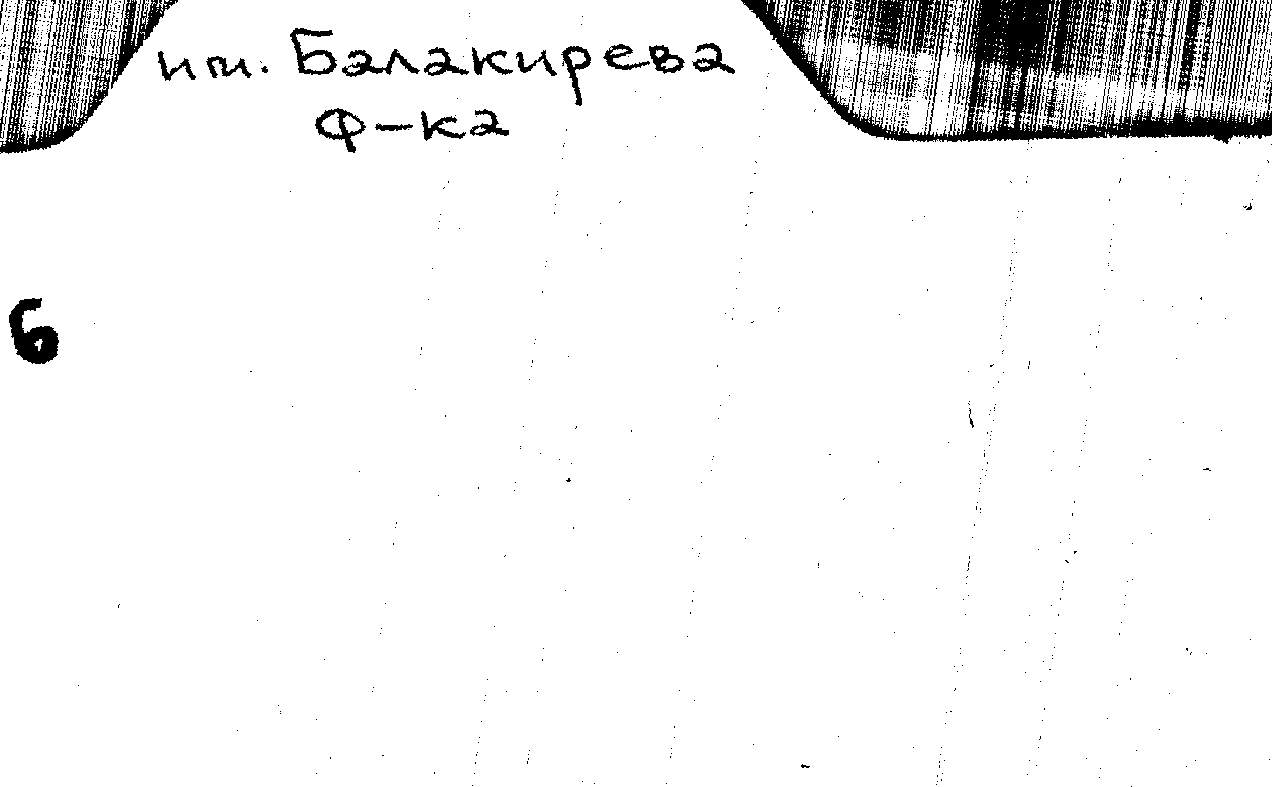 им. Балакирева
ф-ка
6